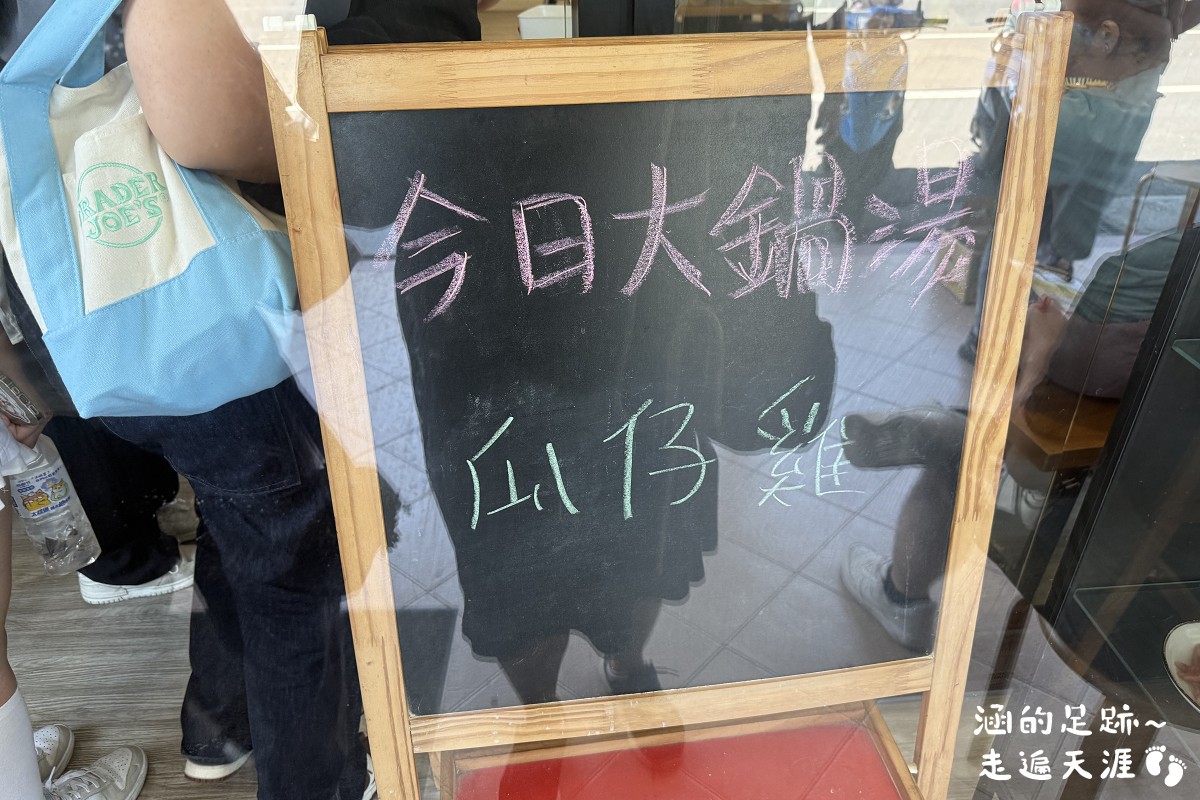 TRADER
JOE'S
今日大鍋湯
瓜仔雞
涵的足跡~
走遍天涯